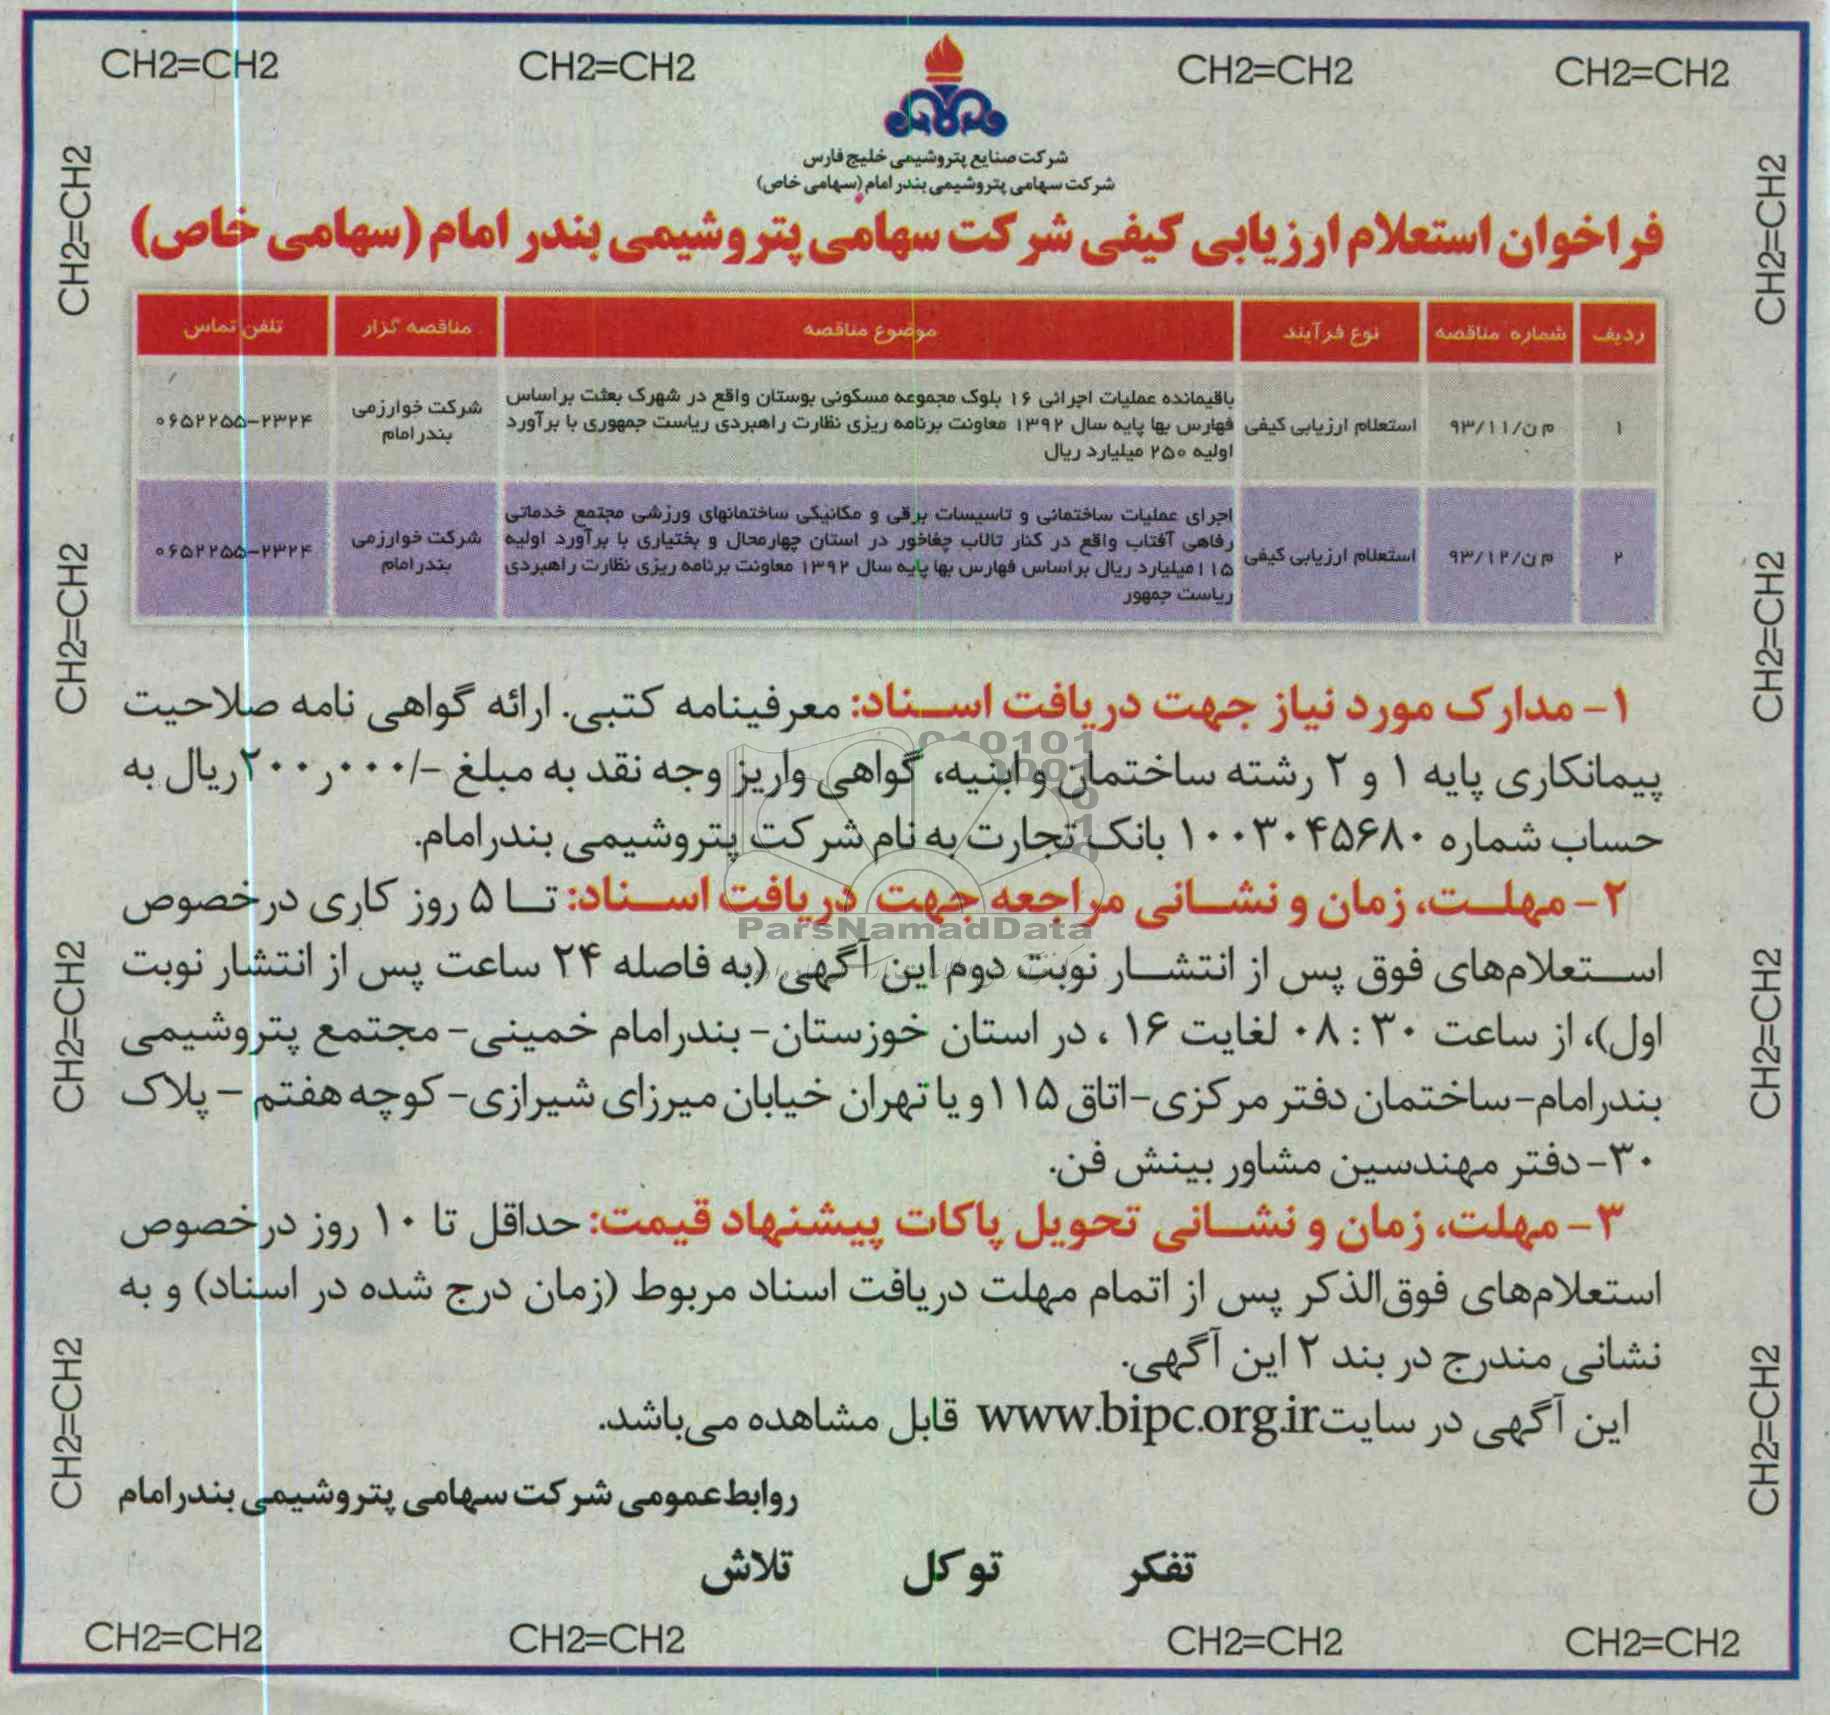 CH2=CH2 CH2=CH2 CH2=CH2 CH2=CH2
شرکت صنایع پتروشیمی خلیج فارس
شرکت سهامی پتروشیمی بندر امام (سهامی خاص)
فراخوان استعلام ارزیابی کیفی شرکت سهامی پتروشیمی بندر امام (سهامی خاص)
ردیف شماره مناقصه نوع فرآیند موضوع مناقصه مناقصه گزار تلفن تماس
۱ م ن/۹۳/۱۱ استعلام ارزیابی کیفی
باقیمانده عملیات اجرائی ۱۶ بلوک مجموعه مسکونی بوستان واقع در شهرک بعثت براساس
فهارس بها پایه سال ۱۳۹۲ معاونت برنامه ریزی نظارت راهبردی ریاست جمهوری با برآورد
اولیه ۲۵۰ میلیارد ریال
شرکت خوارزمی
بندرامام
۰۶۵۲۲۵۵-۲۳۲۴
۲ م ن/۹۳/۱۲ استعلام ارزیابی کیفی
اجرای عملیات ساختمانی و تاسیسات برقی و مکانیکی ساختمانهای ورزشی مجتمع خدماتی
رفاهی آفتاب واقع در کنار تالاب چغاخور در استان چهارمحال و بختیاری با برآورد اولیه
۱۱۵میلیارد ریال براساس فهارس بها پایه سال ۱۳۹۲ معاونت برنامه ریزی نظارت راهبردی
ریاست جمهور
شرکت خوارزمی
بندرامام
۰۶۵۲۲۵۵-۲۳۲۴
۱- مدارک مورد نیاز جهت دریافت اسناد: معرفینامه کتبی. ارائه گواهی نامه صلاحیت
پیمانکاری پایه ۱ و ۲ رشته ساختمان و ابنیه، گواهی واریز وجه نقد به مبلغ -/۲۰۰ر۰۰۰ریال به
حساب شماره ۱۰۰۳۰۴۵۶۸۰ بانک تجارت به نام شرکت پتروشیمی بندرامام.
۲- مهلت، زمان و نشانی مراجعه جهت دریافت اسناد: تا ۵ روز کاری درخصوص
استعلام‌های فوق پس از انتشار نوبت دوم این آگهی (به فاصله ۲۴ ساعت پس از انتشار نوبت
اول)، از ساعت ۳۰ : ۰۸ لغایت ۱۶ ، در استان خوزستان- بندرامام خمینی- مجتمع پتروشیمی
بندرامام-ساختمان دفتر مرکزی-اتاق ۱۱۵و یا تهران خیابان میرزای شیرازی- کوچه هفتم - پلاک
۳۰- دفتر مهندسین مشاور بینش فن.
۳- مهلت، زمان و نشانی تحویل پاکات پیشنهاد قیمت: حداقل تا ۱۰ روز درخصوص
استعلام‌های فوق‌الذکر پس از اتمام مهلت دریافت اسناد مربوط (زمان درج شده در اسناد) و به
نشانی مندرج در بند ۲ این آگهی.
این آگهی در سایت www.bipc.org.ir قابل مشاهده می‌باشد.
روابط عمومی شرکت سهامی پتروشیمی بندرامام
تفکر توکل تلاش
CH2=CH2 CH2=CH2 CH2=CH2 CH2=CH2
CH2=CH2
CH2=CH2
CH2=CH2
CH2=CH2
CH2=CH2
CH2=CH2
CH2=CH2
CH2=CH2
ParsNamadData